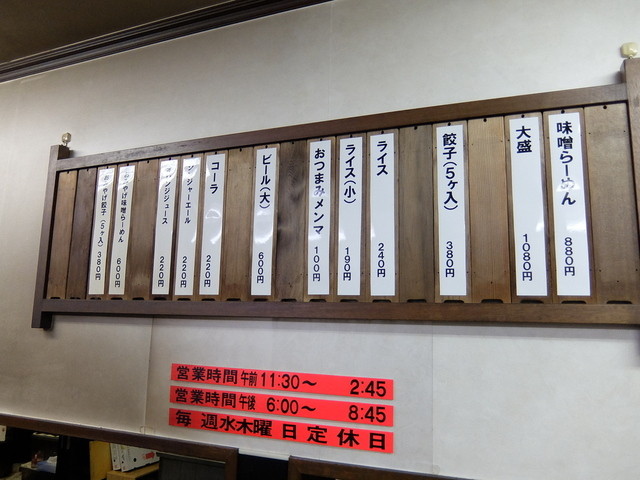 味噌らーめん 880円
大盛 1080円
餃子(5ヶ入) 380円
ライス 240円
ライス(小) 190円
おつまみメンマ 100円
ビール(大) 600円
コーラ 220円
ジンジャーエール 220円
オレンジジュース 220円
おみやげ味噌らーめん 600円
おみやげ餃子(5ヶ入) 380円
営業時間 午前 11:30〜 2:45
営業時間 午後 6:00〜 8:45
毎週水木曜日定休日